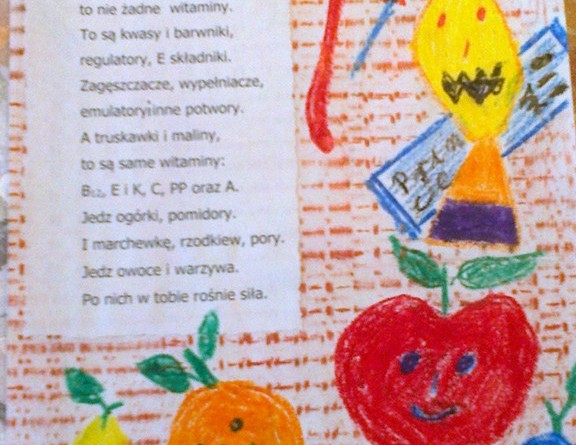 to nie żadne witaminy.
To są kwasy i barwniki,
regulatory, E składniki.
Zagęszczacze, wypełniacze,
emulatory i inne potwory.
A truskawki i maliny,
to są same witaminy:
B₁₂, E i K, C, PP oraz A.
Jedz ogórki, pomidory.
I marchewkę, rzodkiew, pory.
Jedz owoce i warzywa.
Po nich w tobie rośnie siła.